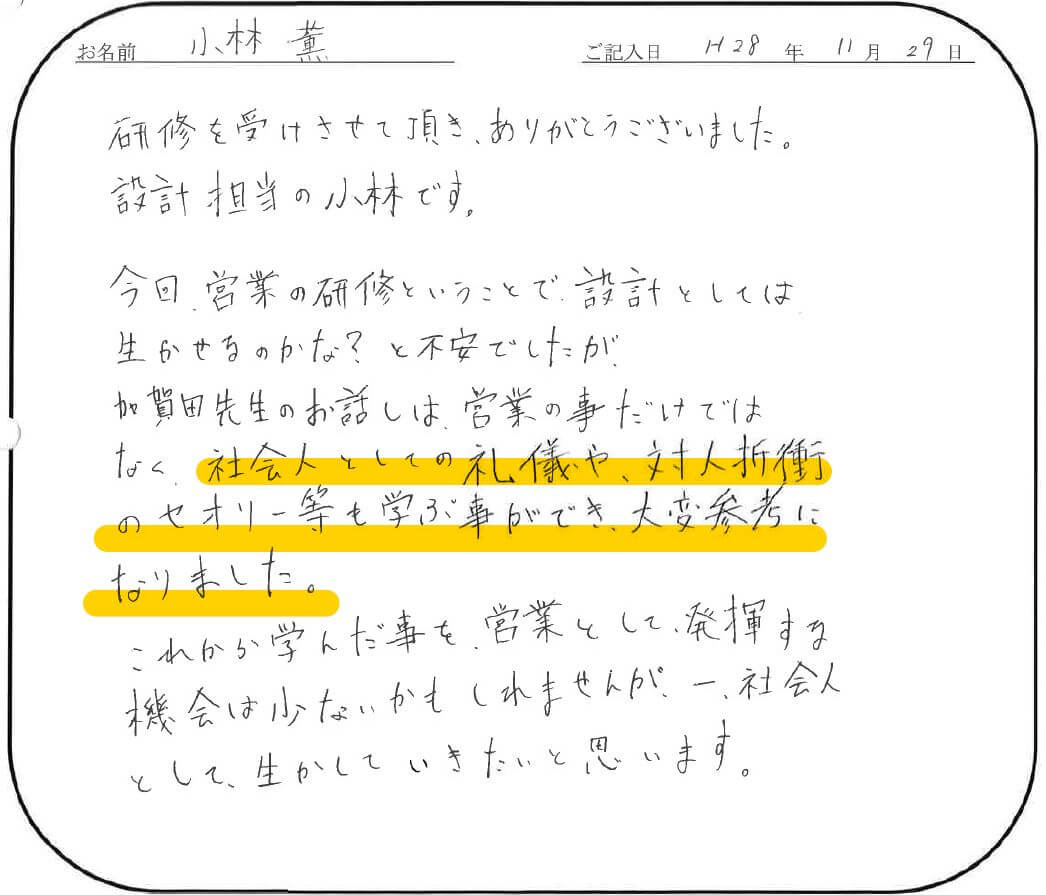 お名前 小林 薫 ご記入日 H28 年 11 月 29 日
研修を受けさせて頂き、ありがとうございました。
設計担当の小林です。
今回、営業の研修ということで、設計としては
生かせるのかな？と不安でしたが、
加賀田先生のお話しは、営業の事だけでは
なく、社会人としての礼儀や、対人折衝
のセオリー等も学ぶ事ができ、大変参考に
なりました。
これから学んだ事を、営業として、発揮する
機会は少ないかもしれませんが、一、社会人
として、生かしていきたいと思います。